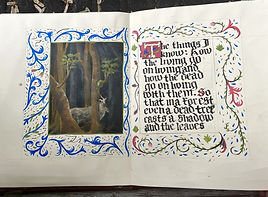 The things I
know: How
the living go
on living and
how the dead
go on living
with them. So
that in a forest
even a dead tree
casts a shadow
and the leaves